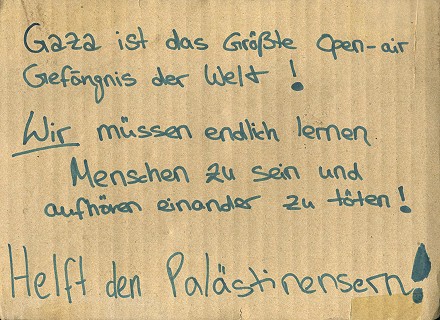 Gaza ist das Größte Open-air
Gefängnis der Welt!
Wir müssen endlich lernen
Menschen zu sein und
aufhören einander zu töten!
Helft den Palästinensern!